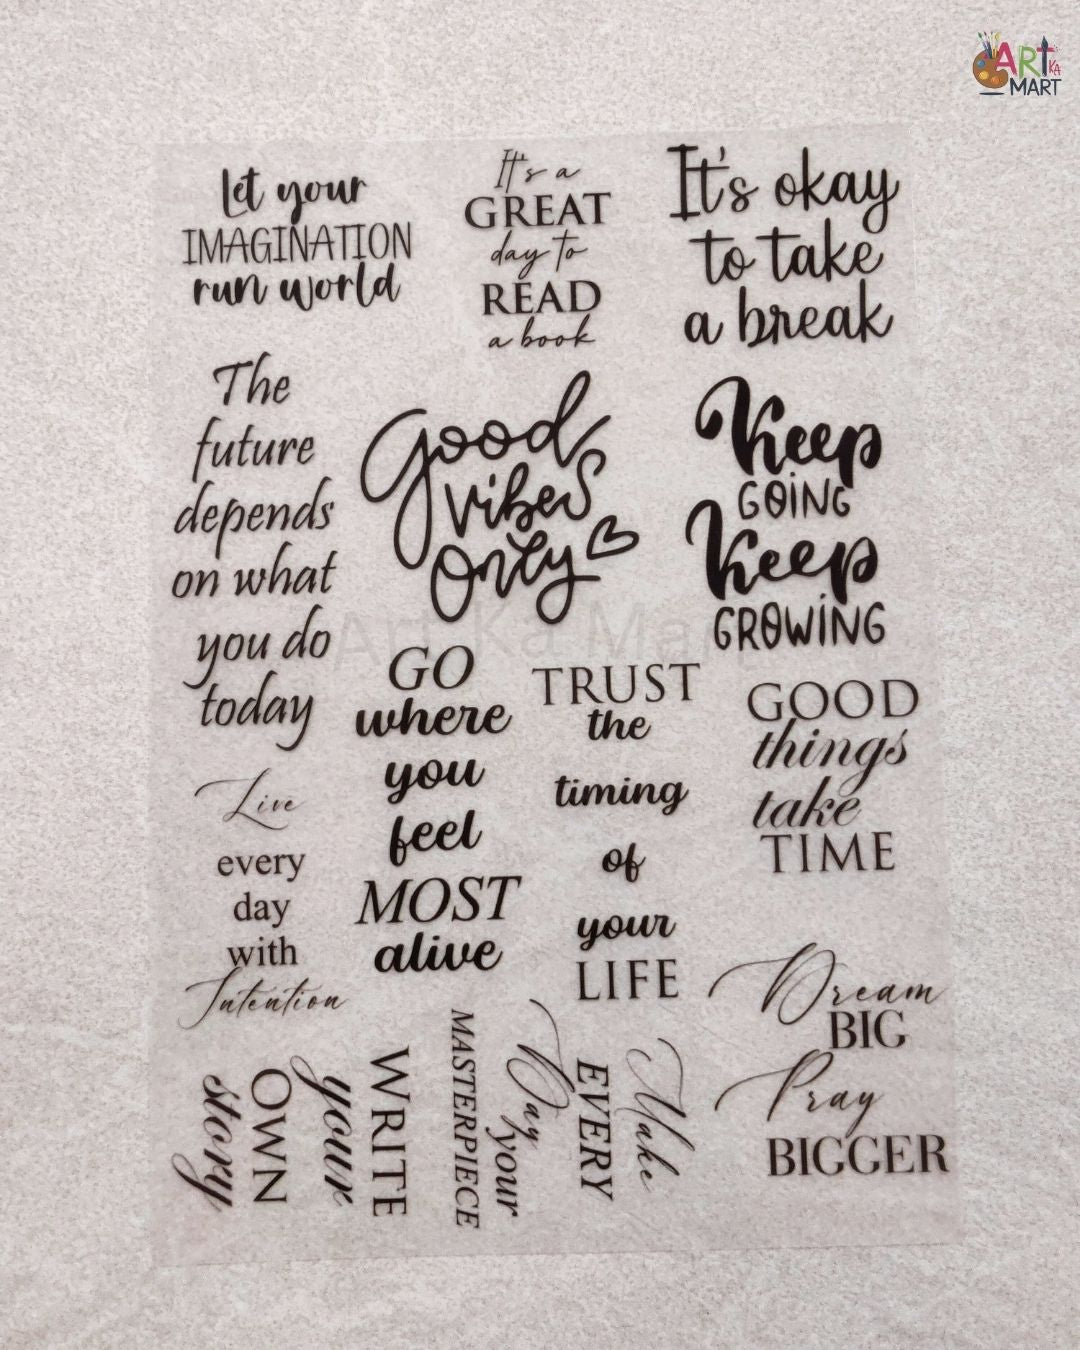 ART
KA
MART
Let your
IMAGINATION
run world
It's a
GREAT
day to
READ
a book
It's okay
to take
a break
The
future
depends
on what
you do
today
Good
vibes
Only
Keep
GOING
Keep
GROWING
Art Ka Mart
GO
where
you
feel
MOST
alive
TRUST
the
timing
of
your
LIFE
GOOD
things
take
TIME
Live
every
day
with
Intention
Dream
BIG
Pray
BIGGER
WRITE
your
OWN
story
Make
EVERY
Day your
MASTERPIECE